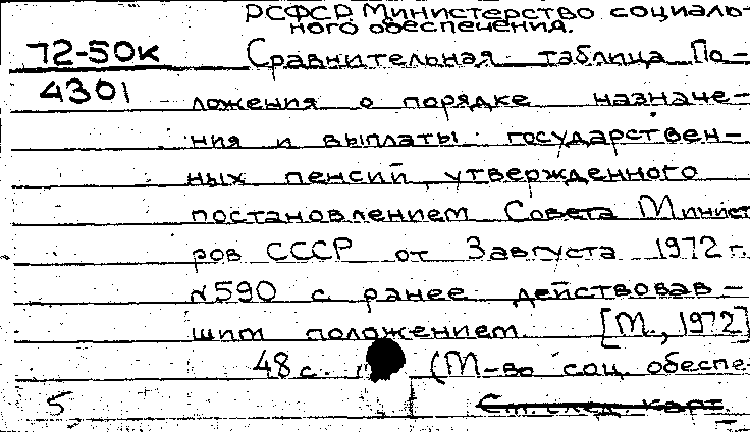 РСФСР. Министерство социаль-
ного обеспечения.
72-50к Сравнительная таблица По-
4301 ложения о порядке назначе-
ния и выплаты государствен-
ных пенсий, утвержденного
постановлением Совета Минист
ров СССР от 3 августа 1972 г.
№590 с ранее действовав-
шим положением. [М., 1972]
48 с. (М-во соц. обеспе-
5 См. след. карт